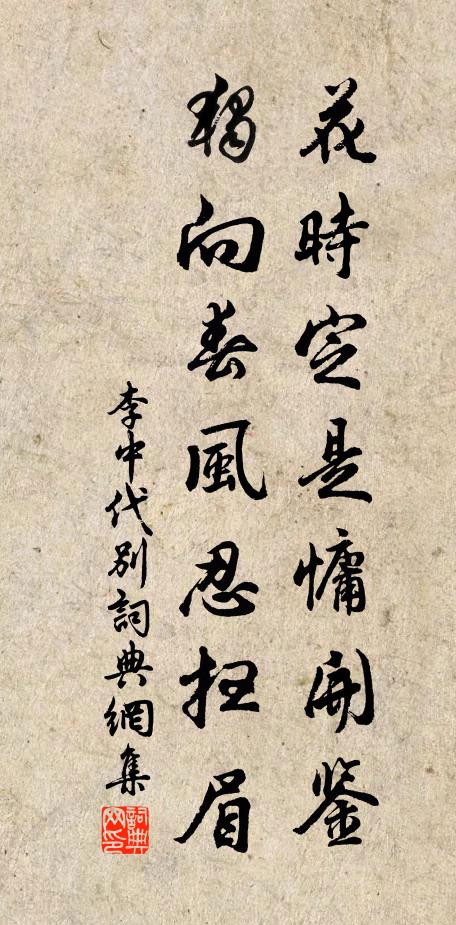 花時定是慵開鉴
獨向春風忍扫眉
李中代别詞典網集
詞典网印